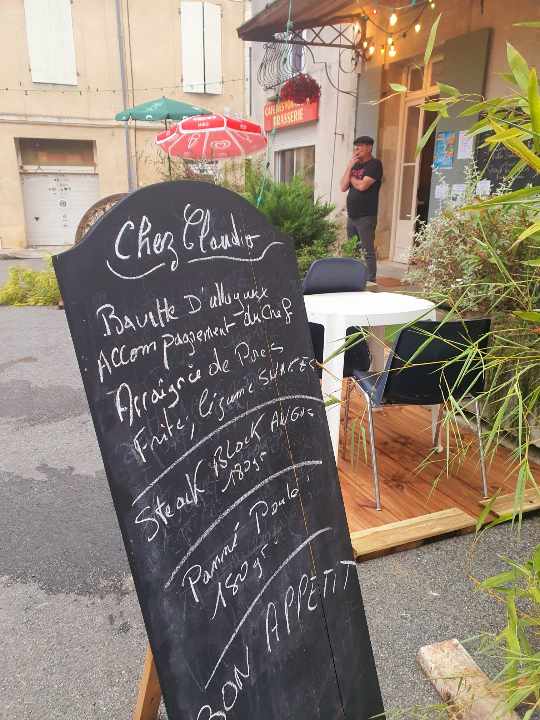 Chez Claudio
Bavette D'alloyaux
Accompagnement du Chef
Arraignée de Porcs
Frite, légume SUNRÉE
Steack Black ANGUS
180 gr
Panné Poulo,
180 gr
BON APPETIT
BRASSERIE